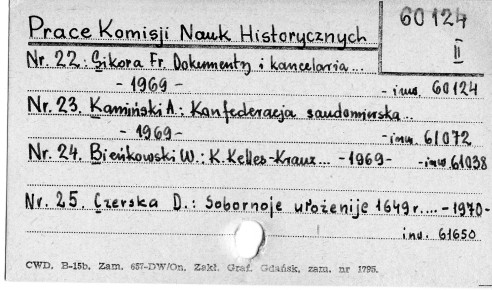 60124
II
Prace Komisji Nauk Historycznych
Nr. 22: Sikora Fr. Dokumenty i kancelaria...
- 1969 - - inw. 60124
Nr. 23. Kamiński A.: Konfederacja sandomierska...
- 1969 - - inw. 61072
Nr. 24. Bieńkowski W.: K. Kelles-Krauz... - 1969 - - inw. 61038
Nr. 25. Czerska D.: Sobornoje ułożenije 1649 r.... - 1970 -
inw. 61650
CWD, B-15b, Zam. 657-DW/On. Zakł. Graf. Gdańsk, zam. nr 1795.